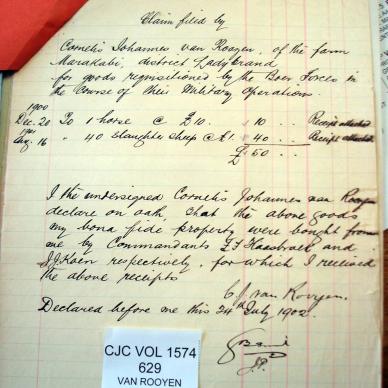 Claim filed by
Cornelis Johannes van Rooyen, of the farm
Marakabi, district Ladybrand
for goods requisitioned by the Boer Forces in
the Course of their Military Operations.
1900
Dec. 20 To 1 horse @ £10. £ 10 .. Receipt attached
1901
Aug. 16 " 40 slaughter sheep @ £1. 40 .. Receipt attached
£ 50 ..
I the undersigned Cornelis Johannes van Rooyen
declare on oath, that the above goods
my bona fide property were bought from
me by Commandants and
J.J. Koen respectively, for which I received
the above receipts
C. J. van Rooyen.
Declared before me this 24th July 1902.
J.P.
CJC VOL 1574
629
VAN ROOYEN